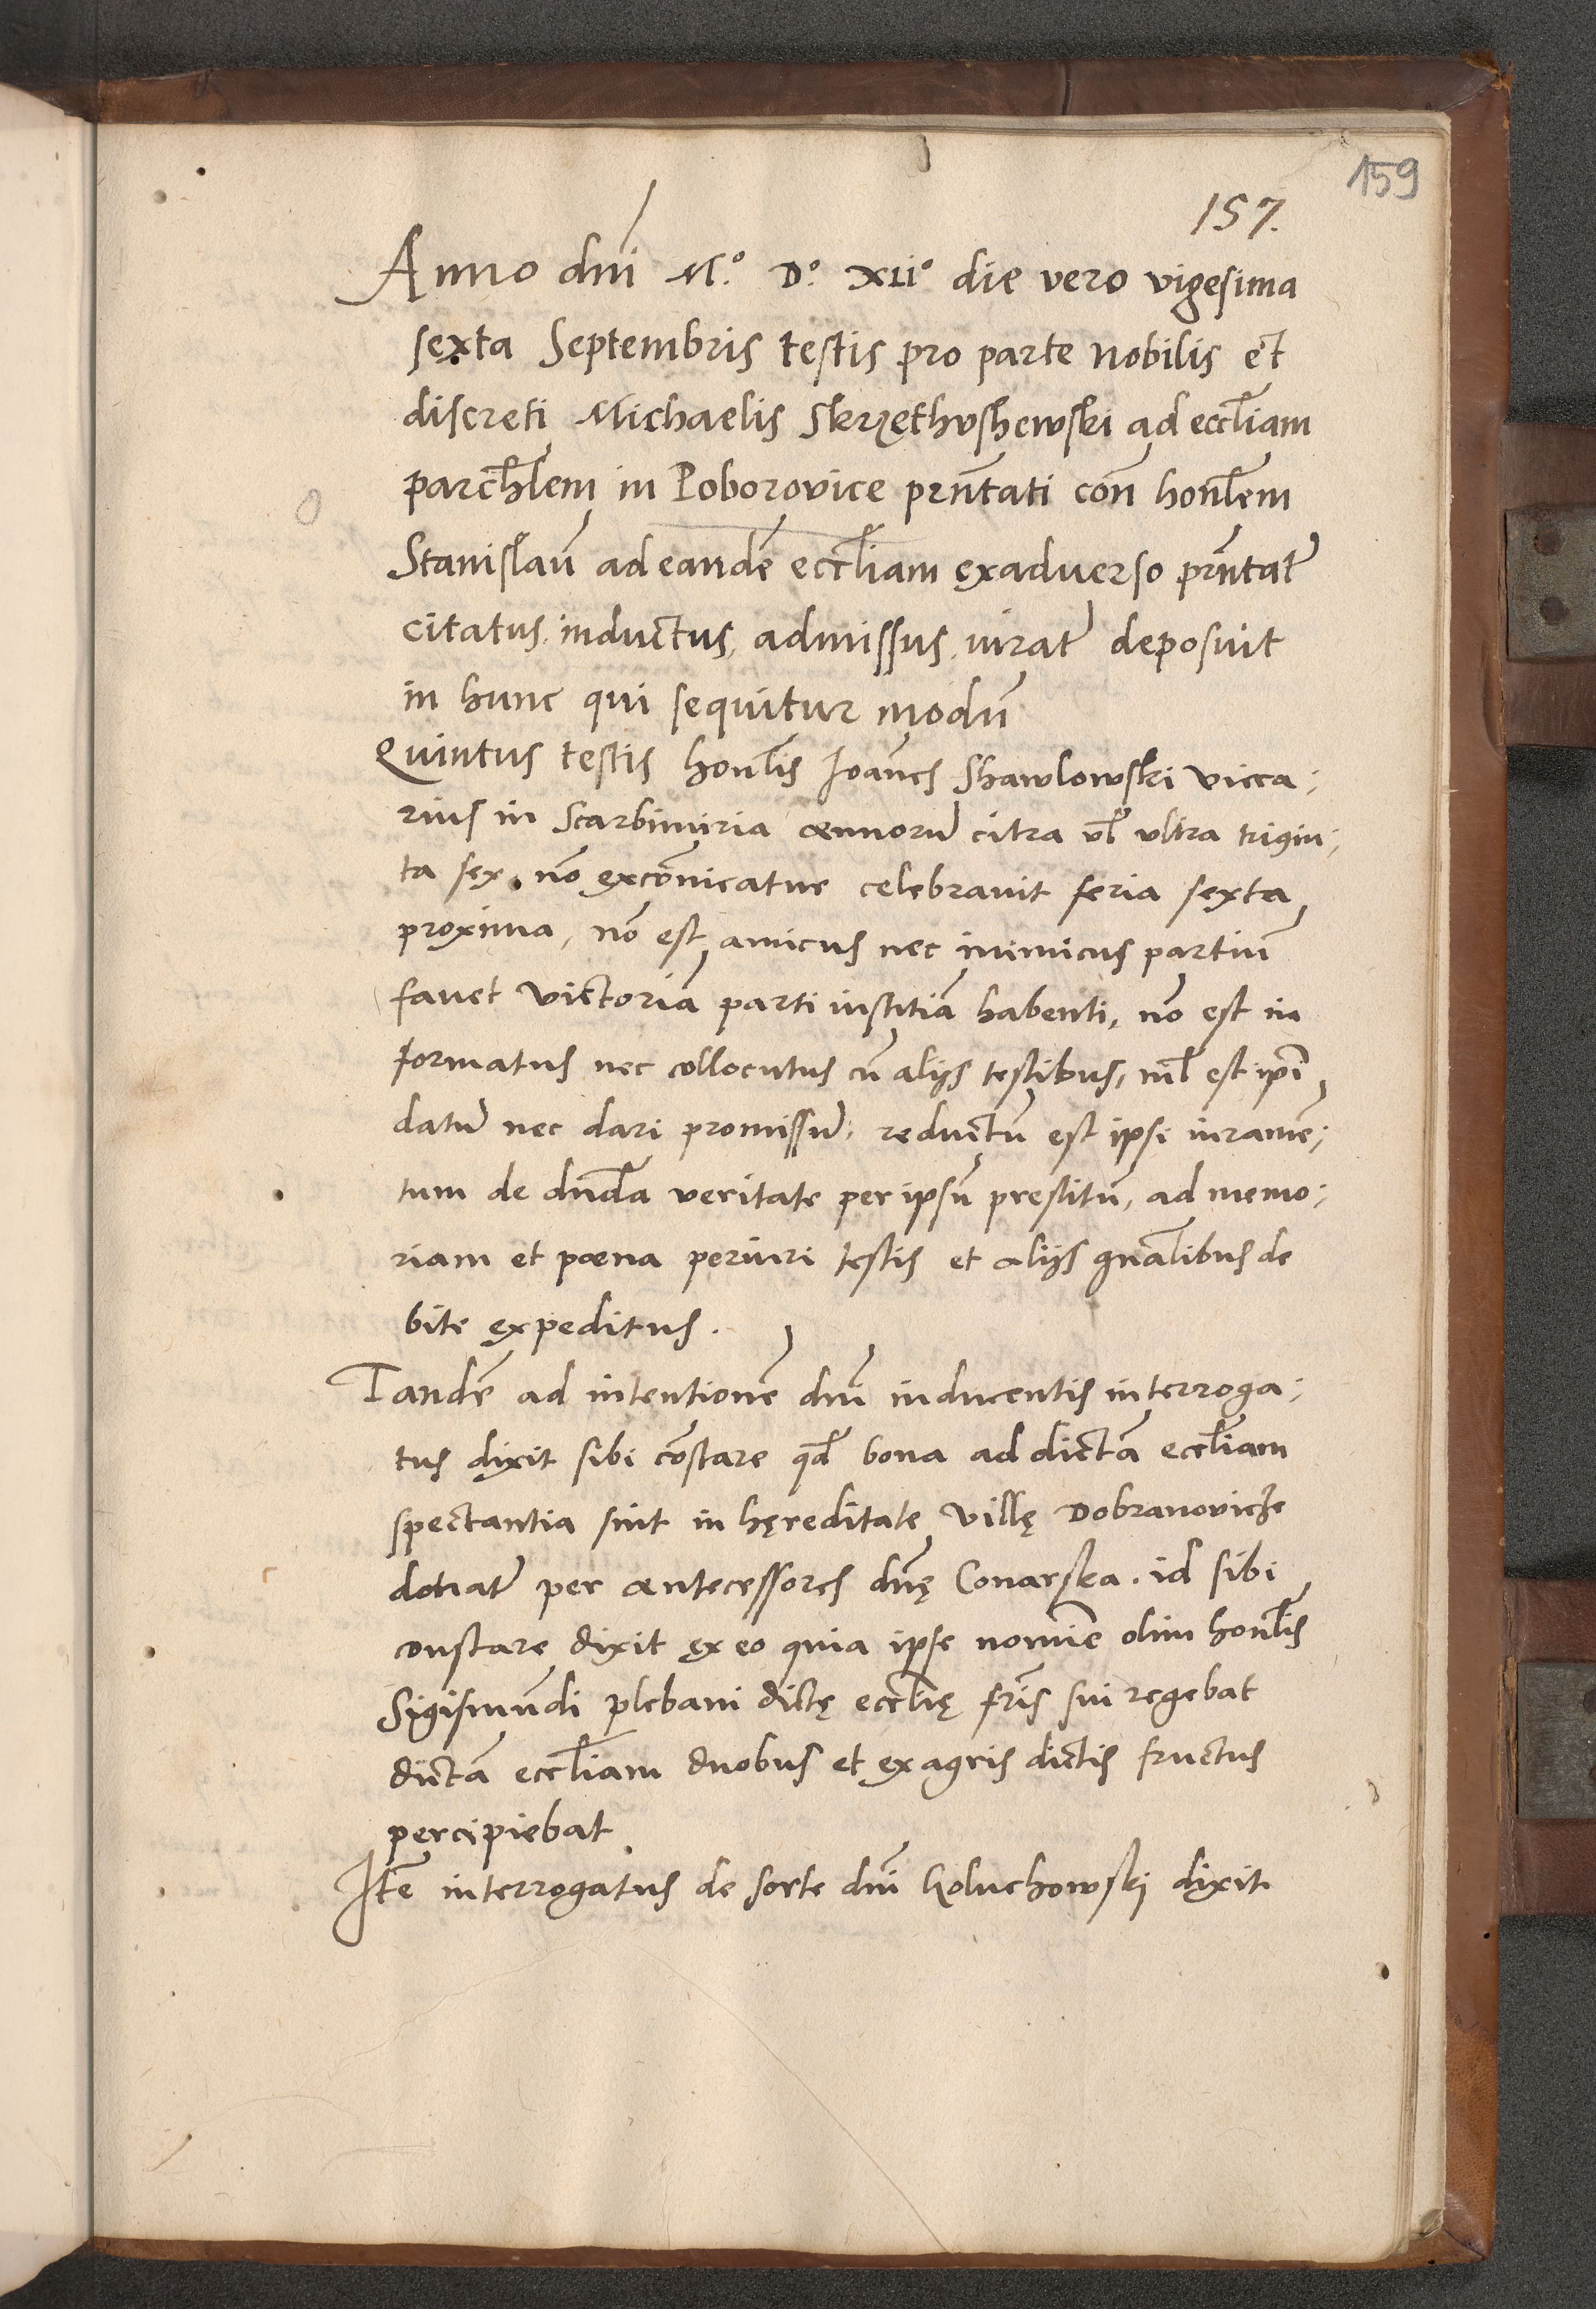 159
157.
Anno dni M.º D.º XLiº die vero vigesima
sexta Septembris testis pro parte nobilis et
discreti Michaelis Skrzethvshewski ad eccliam
parchlem in Poborovice prntati con honlem
Stanislaū ad eandē eccliam exaduerso prntatū
citatus, inductus, admissus, iuratū deposuit
in hunc qui sequitur modū
Quintus testis honlis Ioānes Shawlowski vicca;
rius in Scarbimiria annorū citra vl vltra trigin;
ta sex, nō excōnicatur celebrauit feria sexta
proxima, nō est amicus nec inimicus partiū
fauet victoriā parti iustitiā habenti, nō est in
formatus nec collocutus cū alijs testibus, nil est ipi
datū nec dari promissū, reductū est ipsi iuramē;
tum de dnda veritate per ipsū prestitū, ad memo;
riam et pœna periuri testis et alijs gnalibus de
bite expeditus.
Tandē ad intentionē dni inducentis interroga;
tus dixit sibi cōstare qd bona ad dictā eccliam
spectantia sint in hęreditate villę Dobranovicze
donatū per antecessores dnę Conarska. id sibi
constare dixit ex eo quia ipse nomīe olim honlis
Sigismūdi plebani dictę eccl̄ię fris sui regebat
dictā eccliam duobus et ex agris dictis fructus
percipiebat
Itē interrogatus de sorte dni Koluchowskj dixit